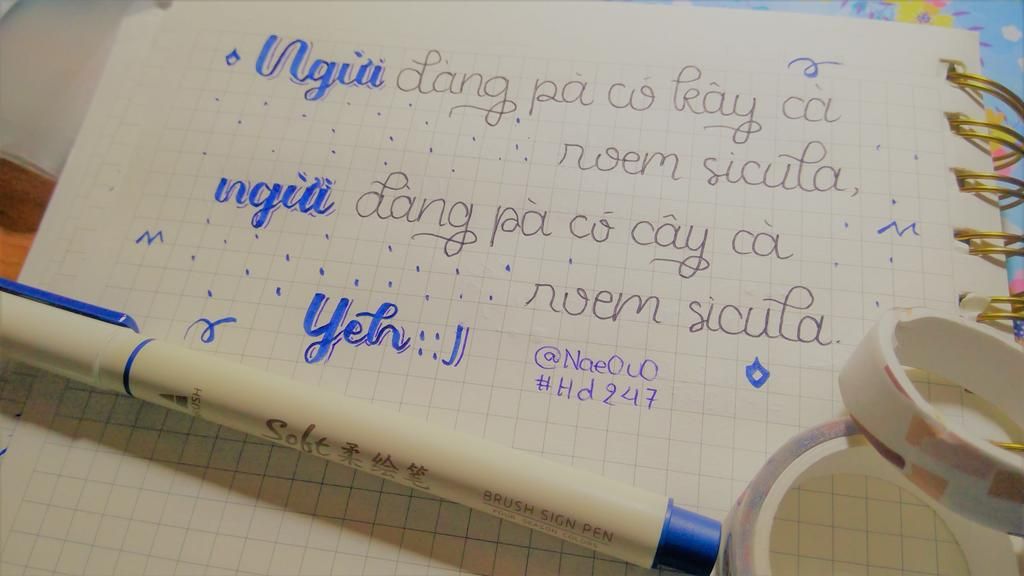 Ngừi đàng pà có kây cà
roem sicula,
ngừi đàng pà có cây cà
roem sicula.
Yeh::))
@NaeOuO
#Hd247
Soft 柔绘笔
BRUSH SIGN PEN